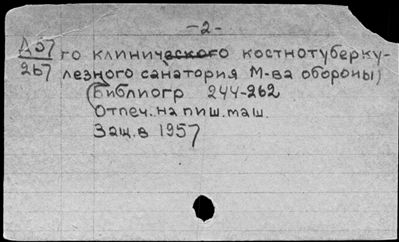 -2-
Д57 го клинического костнотуберку-
267 лезного санатория М-ва обороны)
Библиогр 244-262
Отпеч. на пиш. маш.
Защ. в 1957